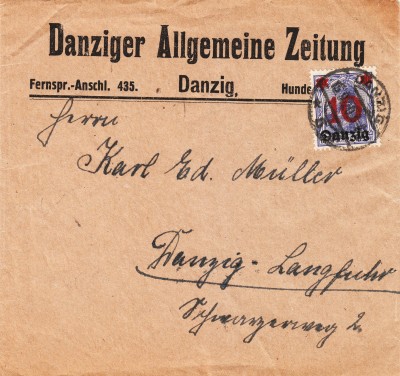 Danziger Allgemeine Zeitung
Fernspr.-Anschl. 435. Danzig, Hunde
10
Danzig
Herrn
Karl Ed. Müller
Danzig-Langfuhr
Schwarzerweg 2